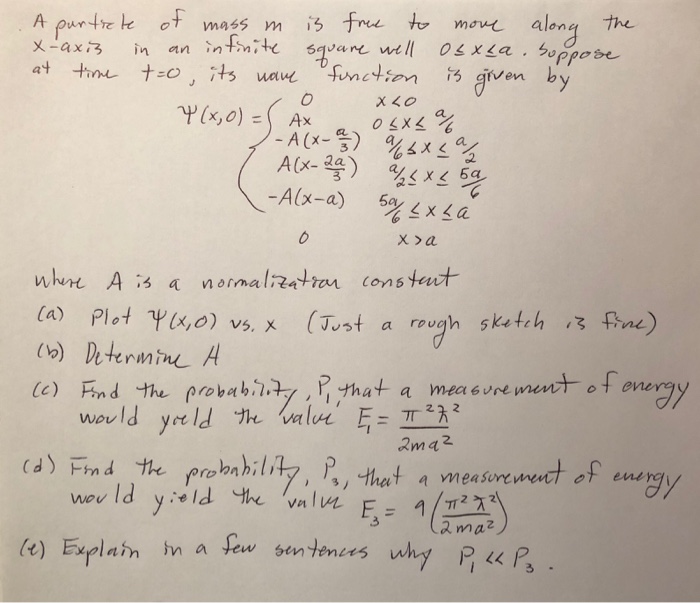 A particle of mass m is free to move along the
x-axis in an infinite square well 0 ≤ x ≤ a. Suppose
at time t=0, its wave function is given by
Ψ(x,0) = { 0 x<0
Ax 0 ≤ x ≤ a/6
-A(x-a/3) a/6 ≤ x ≤ a/2
A(x-2a/3) a/2 ≤ x ≤ 5a/6
-A(x-a) 5a/6 ≤ x ≤ a
0 x>a
where A is a normalization constant
(a) Plot Ψ(x,0) vs. x (Just a rough sketch is fine)
(b) Determine A
(c) Find the probability, P₁, that a measurement of energy
would yield the value E₁ = π²ħ²/2ma²
(d) Find the probability, P₃, that a measurement of energy
would yield the value E₃ = 9(π²ħ²/2ma²)
(e) Explain in a few sentences why P₁ << P₃.